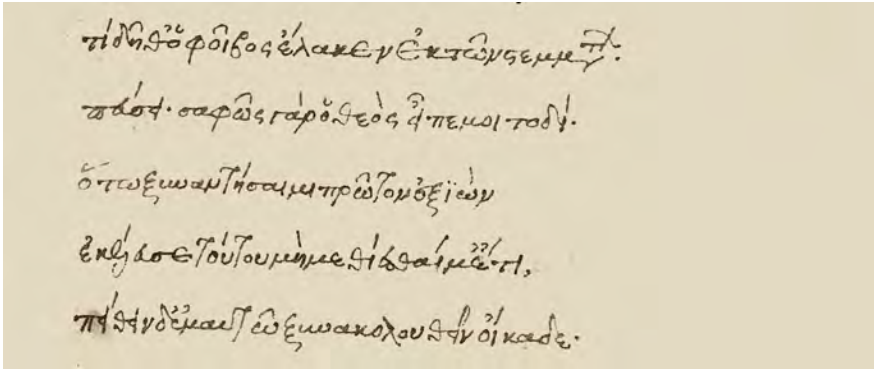 τί δῆθ' ὁ φοῖβος ἔλακεν ἐκ τῶν στεμμάτων·
πεύσει· σαφῶς γὰρ ὁ θεὸς εἶπε μοι τοδί·
ὅτω ξυναντήσαιμι πρῶτον ἐξϊὼν
ἐκέλευσε τούτου μὴ μεθίεσθαί μ' ἔτι,
πείθειν δ' ἐμαυτῶ ξυνακολουθεῖν οἴκαδε·